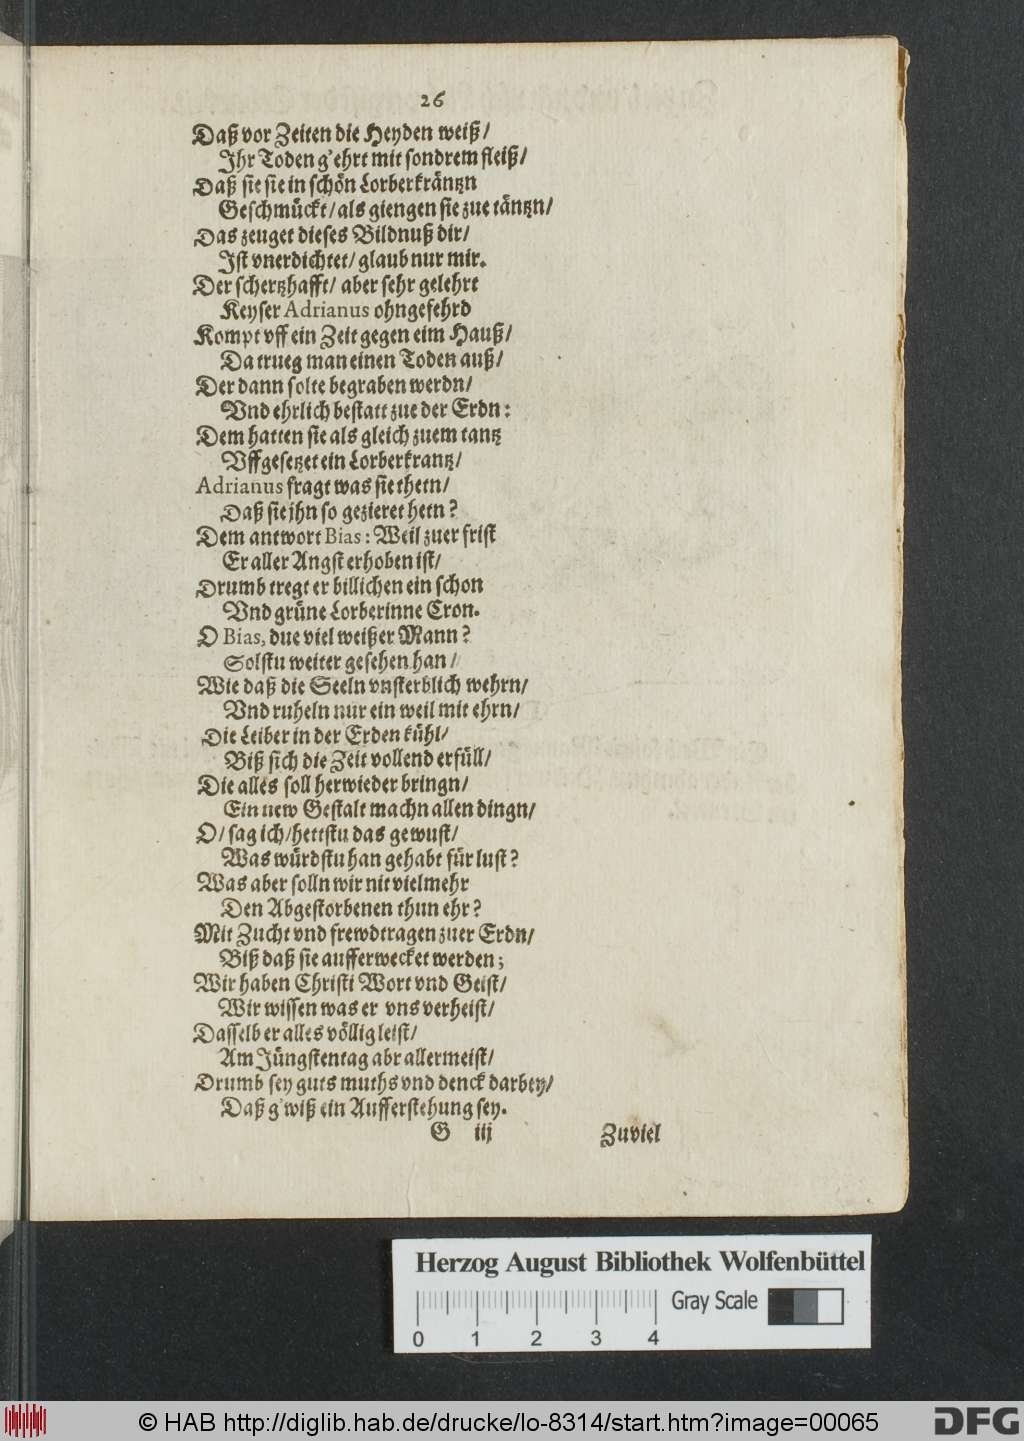 26
Daß vor Zeiten die Heyden weiß/
Ihr Toden g'ehrt mit sondrem fleiß/
Daß sie sie in schön Lorberkräntzn
Geschmückt/ als giengen sie zue täntzn/
Das zeuget dieses Bildnuß dir/
Ist vnerdichtet/ glaub nur mir.
Der schertzhafft/ aber sehr gelehrt
Keyser Adrianus ohngefehrd
Kompt vff ein Zeit gegen eim Hauß/
Da trueg man einen Toden auß/
Der dann solte begraben werdn/
Vnd ehrlich bestatt zue der Erdn:
Dem hatten sie als gleich zuem tantz
Vffgesetzet ein Lorberkrantz/
Adrianus fragt was sie thetn/
Daß sie jhn so gezieret hetn?
Dem antwort Bias: Weil zuer frist
Er aller Angst erhoben ist/
Drumb tregt er billichen ein schon
Vnd grüne Lorberinne Cron.
O Bias, due viel weißer Mann?
Solstu weiter gesehen han/
Wie daß die Seeln vnsterblich wehrn/
Vnd ruheln nur ein weil mit ehrn/
Die Leiber in der Erden kühl/
Biß sich die Zeit vollend erfüll/
Die alles soll herwieder bringn/
Ein new Gestalt machn allen dingn/
O/ sag ich/ hettstu das gewust/
Was würdstu han gehabt für lust?
Was aber solln wir nit vielmehr
Den Abgestorbenen thun ehr?
Mit Zucht vnd frewd tragen zuer Erdn/
Biß daß sie aufferwecket werden;
Wir haben Christi Wort vnd Geist/
Wir wissen was er vns verheist/
Dasselb er alles völlig leist/
Am Jüngstentag abr allermeist/
Drumb sey guts muths vnd denck darbey/
Daß g'wiß ein Aufferstehung sey.
G iij Zuviel
Herzog August Bibliothek Wolfenbüttel
Gray Scale
0 1 2 3 4
© HAB http://diglib.hab.de/drucke/lo-8314/start.htm?image=00065
DFG